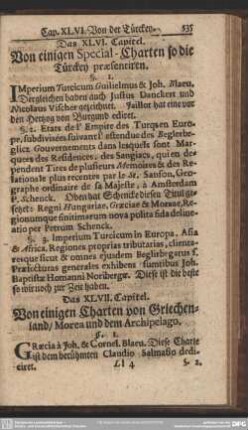 Cap. XLVI. Von der Türckey. 535
Das XLVI. Capitel.
Von einigen Special-Charten so die
Türckey præsentiren.
§. 1.
IMperium Turcicum Guilielmus & Joh. Blaeu.
Dergleichen haben auch Justus Danckert und
Nicolaus Vischer gezeichnet. Jaillot hat eine vor
den Hertzog von Burgund ediret.
§. 2. Etats de l' Empire des Turqs en Europe,
subdivisées suivant l' estendue des Beglerbeglics
Gouvernements dans lesquels sont Marques
des Residences, des Sangiacs, qui en dependent
Tires de plusieurs Memoires & des Relations
le plus recentes par le Sr. Sanson, Geographe
ordinaire de sa Majestè, à Amsterdam
P. Schenck. Oben hat Schencke diesen Titul gesetzet:
Regni Hungariæ, Græciae & Moreae, Regionumque
finitimarum nova polita fida delineatio
per Petrum Schenck.
§. 3. Imperium Turcicum in Europa, Asia
& Africa, Regiones proprias tributarias, clientaresque
sicut & omnes ejusdem Beglirbegatus s.
Præfecturas generales exhibens sumtibus Joh.
Baptistæ Homanni Noribergæ. Diese ist die beste
so wir noch zur Zeit haben.
Das XLVII. Capitel.
Von einigen Charten von Griechen-
land/ Morea und dem Archipelago.
§. 1.
GRæcia à Joh. & Cornel. Blaeu. Diese Charte
ist dem berühmten Claudio Salmasio dediciret.
Ll 4 §. 2.